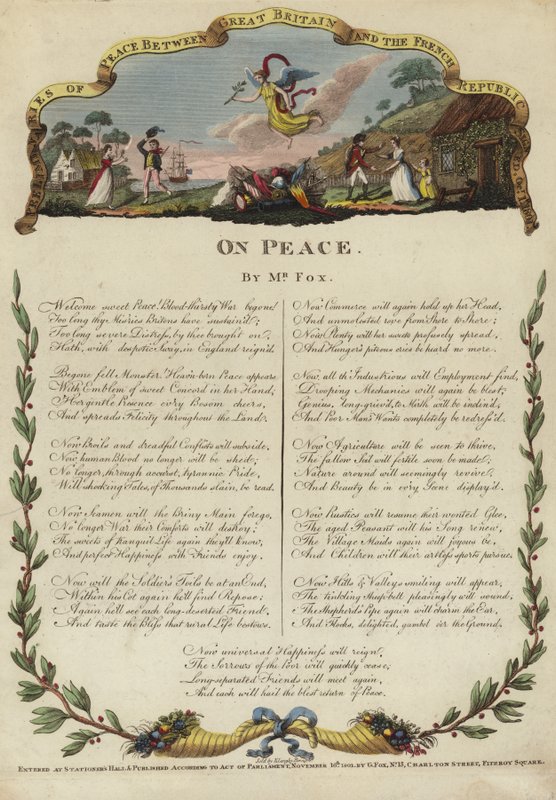 PRELIMINARIES OF PEACE BETWEEN GREAT BRITAIN AND THE FRENCH REPUBLIC
ON PEACE.
BY Mr. FOX.
Welcome sweet Peace! Blood-thirsty War begone!
Too long thy Mis'ries Britons have sustain'd;
Too long severe Distress, by thee brought on,
Hath, with despotic Sway, in England reign'd.
Begone fell Monster! Heav'n-born Peace appears
With Emblem of sweet Concord in her Hand;
Her gentle Presence ev'ry Bosom cheers,
And spreads Felicity throughout the Land.
Now Broils and dreadful Conflicts will subside,
Now human Blood no longer will be shed;
No longer, through accurst, tyrannic Pride,
Will shocking Tales, of Thousands slain, be read.
Now Seamen will the Briny Main forego,
No longer War their Comforts will destroy;
The sweets of tranquil Life again they'll know,
And perfect Happiness with Friends enjoy.
Now will the Soldier's Toils be at an End,
Within his Cot again he'll find Repose;
Again he'll see each long-deserted Friend,
And taste the Bliss that rural Life bestows.
Now Commerce will again hold up her Head,
And unmolested rove from Shore to Shore;
Now Plenty will her sweets profusely spread,
And Hunger's piteous cries be heard no more.
Now, all th'Industrious will Employment find,
Drooping Mechanics will again be blest;
Genius, long-griev'd, to Mirth will be inclin'd,
And Poor Men's Wants completely be redress'd.
Now Agriculture will be seen to thrive,
The fallow Soil will fertile soon be made;
Nature around will seemingly revive,
And Beauty be in ev'ry Scene display'd.
Now Rustics will resume their wonted Glee,
The aged Peasant will his Song renew,
The Village Maids again will joyous be,
And Children will their artless sports pursue.
Now Hills & Valleys smiling will appear,
The tinkling Sheep-bell pleasingly will sound;
The Shepherd's Pipe again will charm the Ear,
And Flocks, delighted, gambol o'er the Ground.
Now universal Happiness will reign,
The Sorrows of the Poor will quickly cease;
Long-separated Friends will meet again,
And each will hail the blest return of Peace.
Sold by
ENTERED AT STATIONERS HALL & PUBLISHED ACCORDING TO ACT OF PARLIAMENT, NOVEMBER 16th, 1801, BY G. FOX, No. 15, CHARLTON STREET, FITZROY SQUARE.